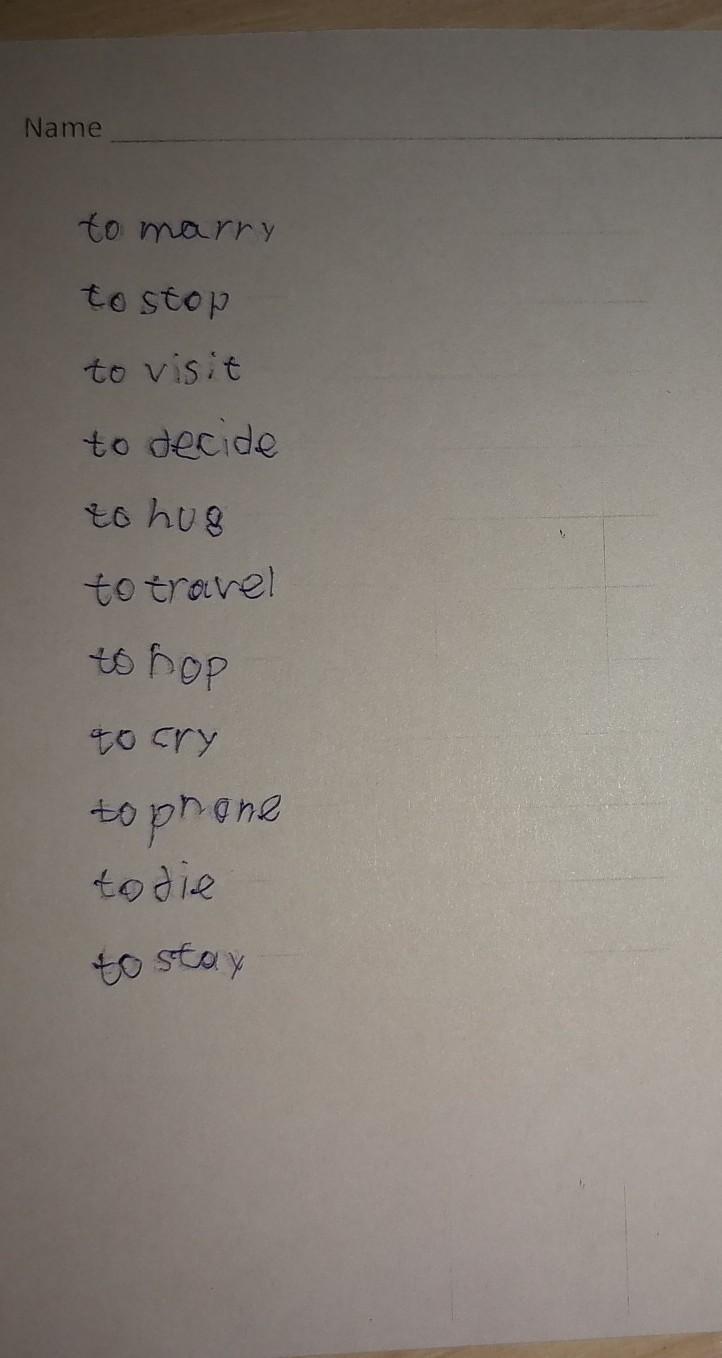 Name
to marry
to stop
to visit
to decide
to hug
to travel
to hop
to cry
to phone
to die
to stay